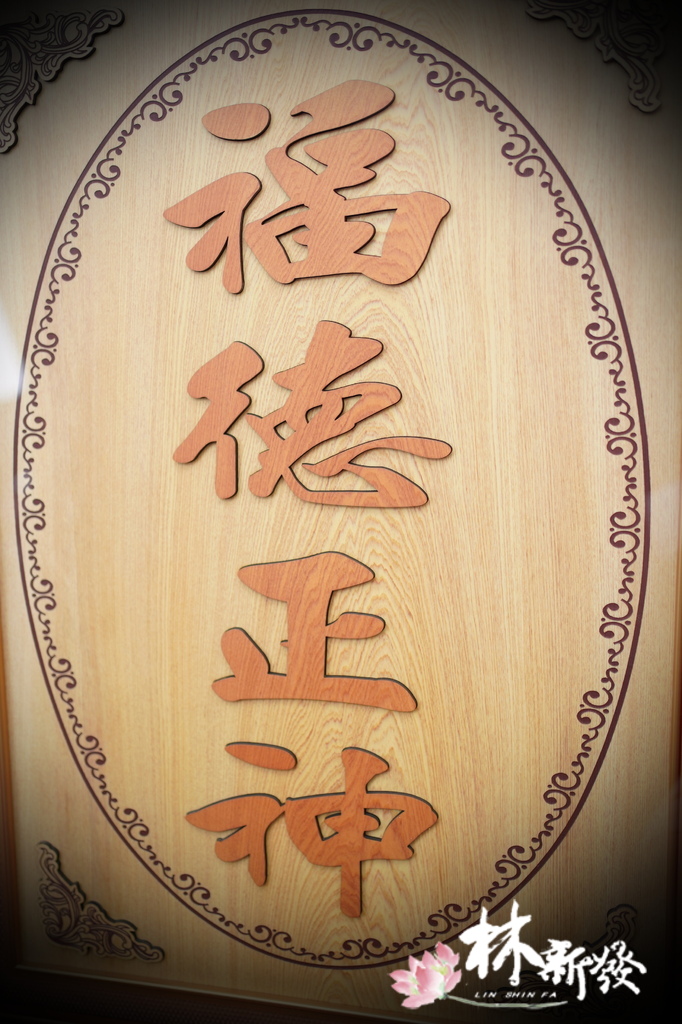 福德正神
林新發
LIN SHIN FA